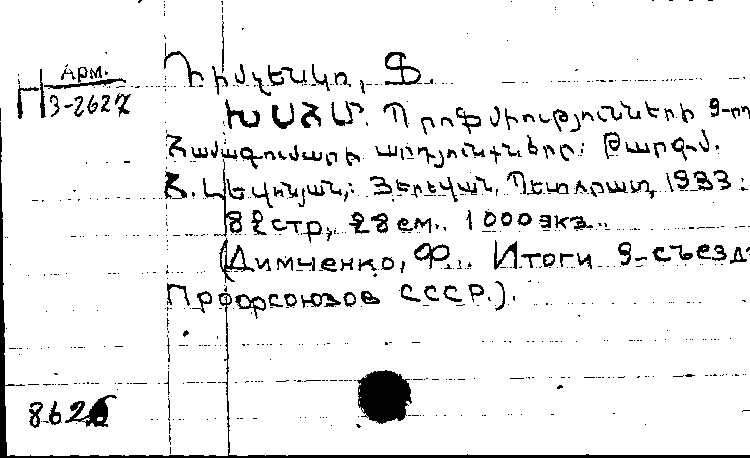 Арм.
Н 3-2627
Դիմչենկո, Ֆ.
ԽՍՀՄ. Պրոֆմիությունների 9-րդ
Համագումարի արդյունքները: Թարգմ.
Հ. Լևոնյան,: Յերևան, Պետհրատ, 1933:
82 стр, 28 ем.. 1000 экз..
(Димченко, Ф.. Итоги 9-съезд
Прфорсоюзов СССР.).
862